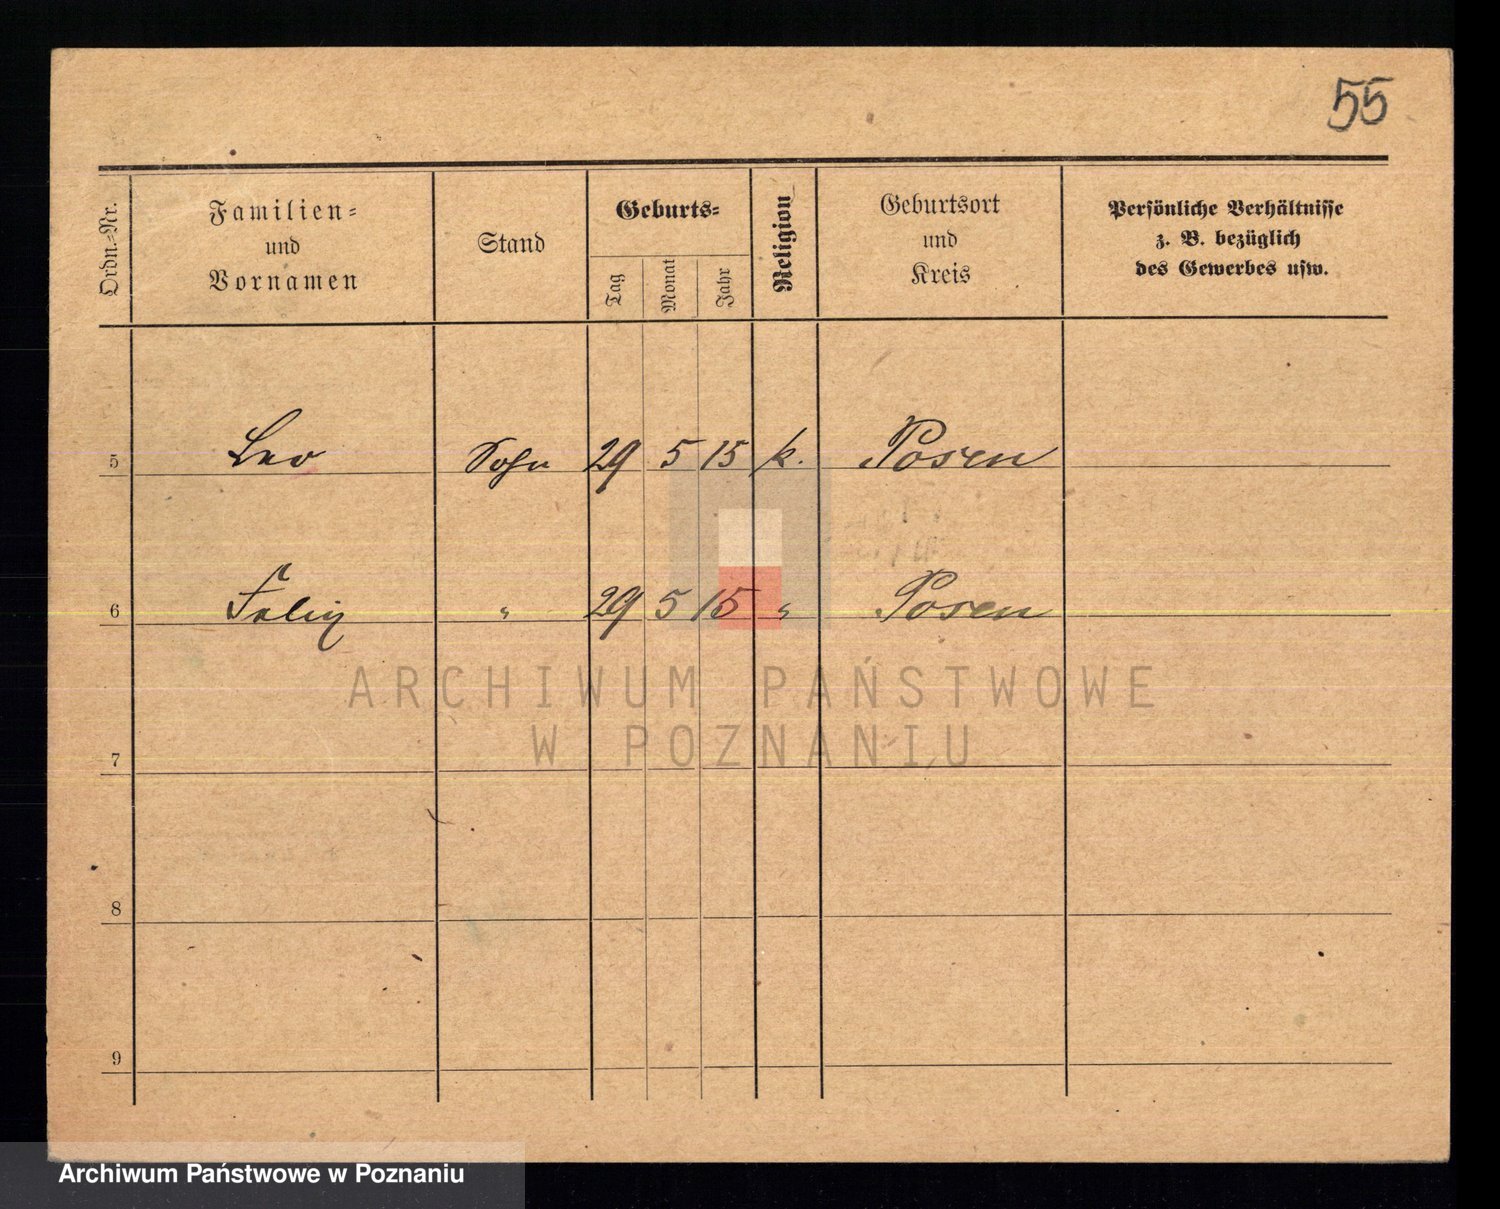 55
Ordn.-Nr.
Familien-
und
Vornamen
Stand
Geburts-
Tag
Monat
Jahr
Religion
Geburtsort
und
Kreis
Persönliche Verhältnisse
z. B. bezüglich
des Gewerbes usw.
5 Leo Sohn 29 5 15 k. Posen
6 Felix " 29 5 15 " Posen
ARCHIWUM PAŃSTWOWE
W POZNANIU
7
8
9
Archiwum Państwowe w Poznaniu